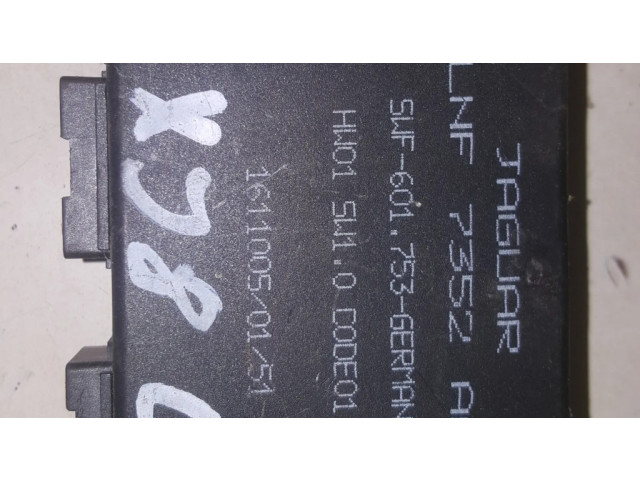 JAGUAR
LNF 7352 A
SWF-601.753-GERMAN
HW01 SW1.0 CODE01
1611005/01/51
X58